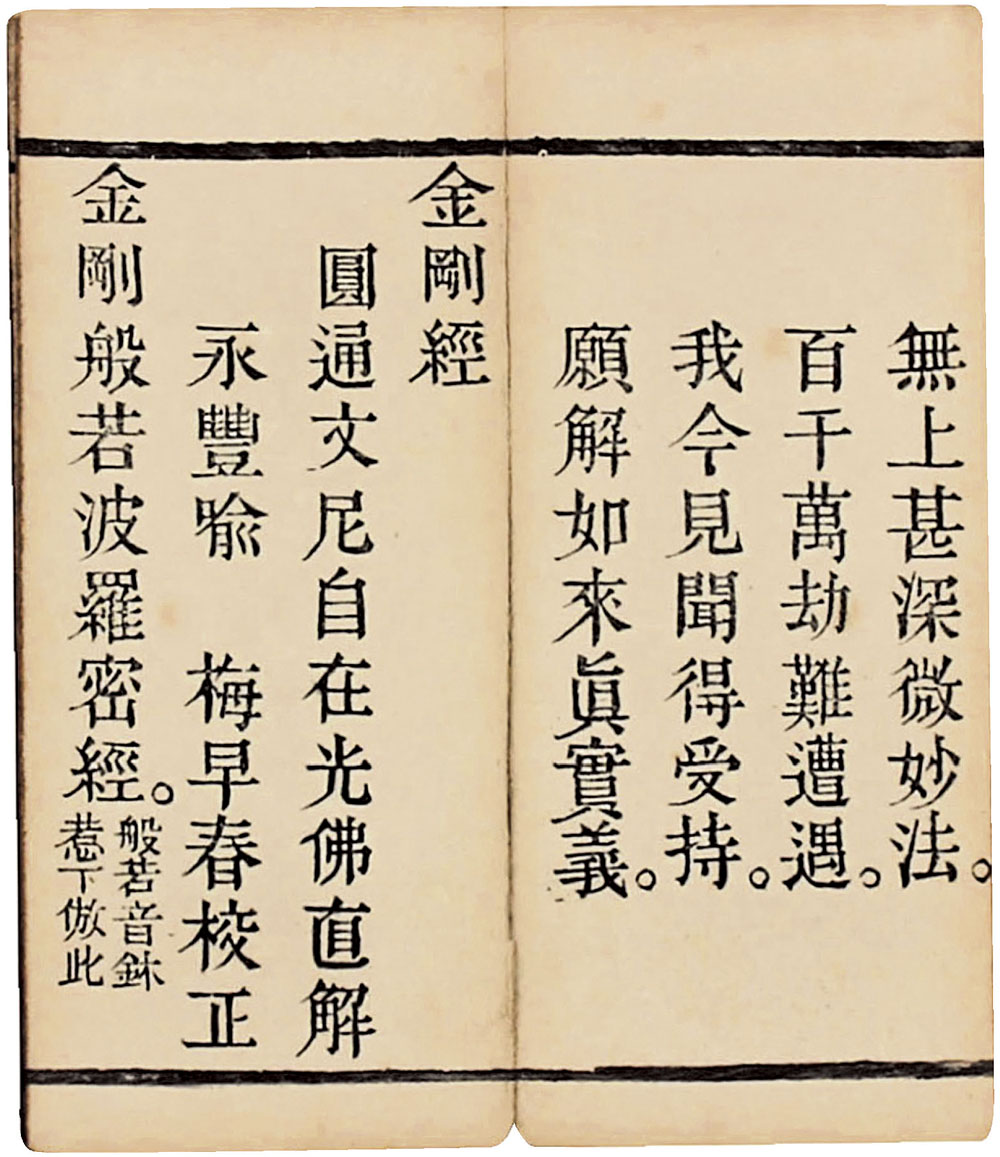 無上甚深微妙法。
百千萬劫難遭遇。
我今見聞得受持。
願解如來眞實義。
金剛經
圓通文尼自在光佛直解
永豐喩　梅早春校正
金剛般若波羅密經。
般若音鉢
惹下倣此